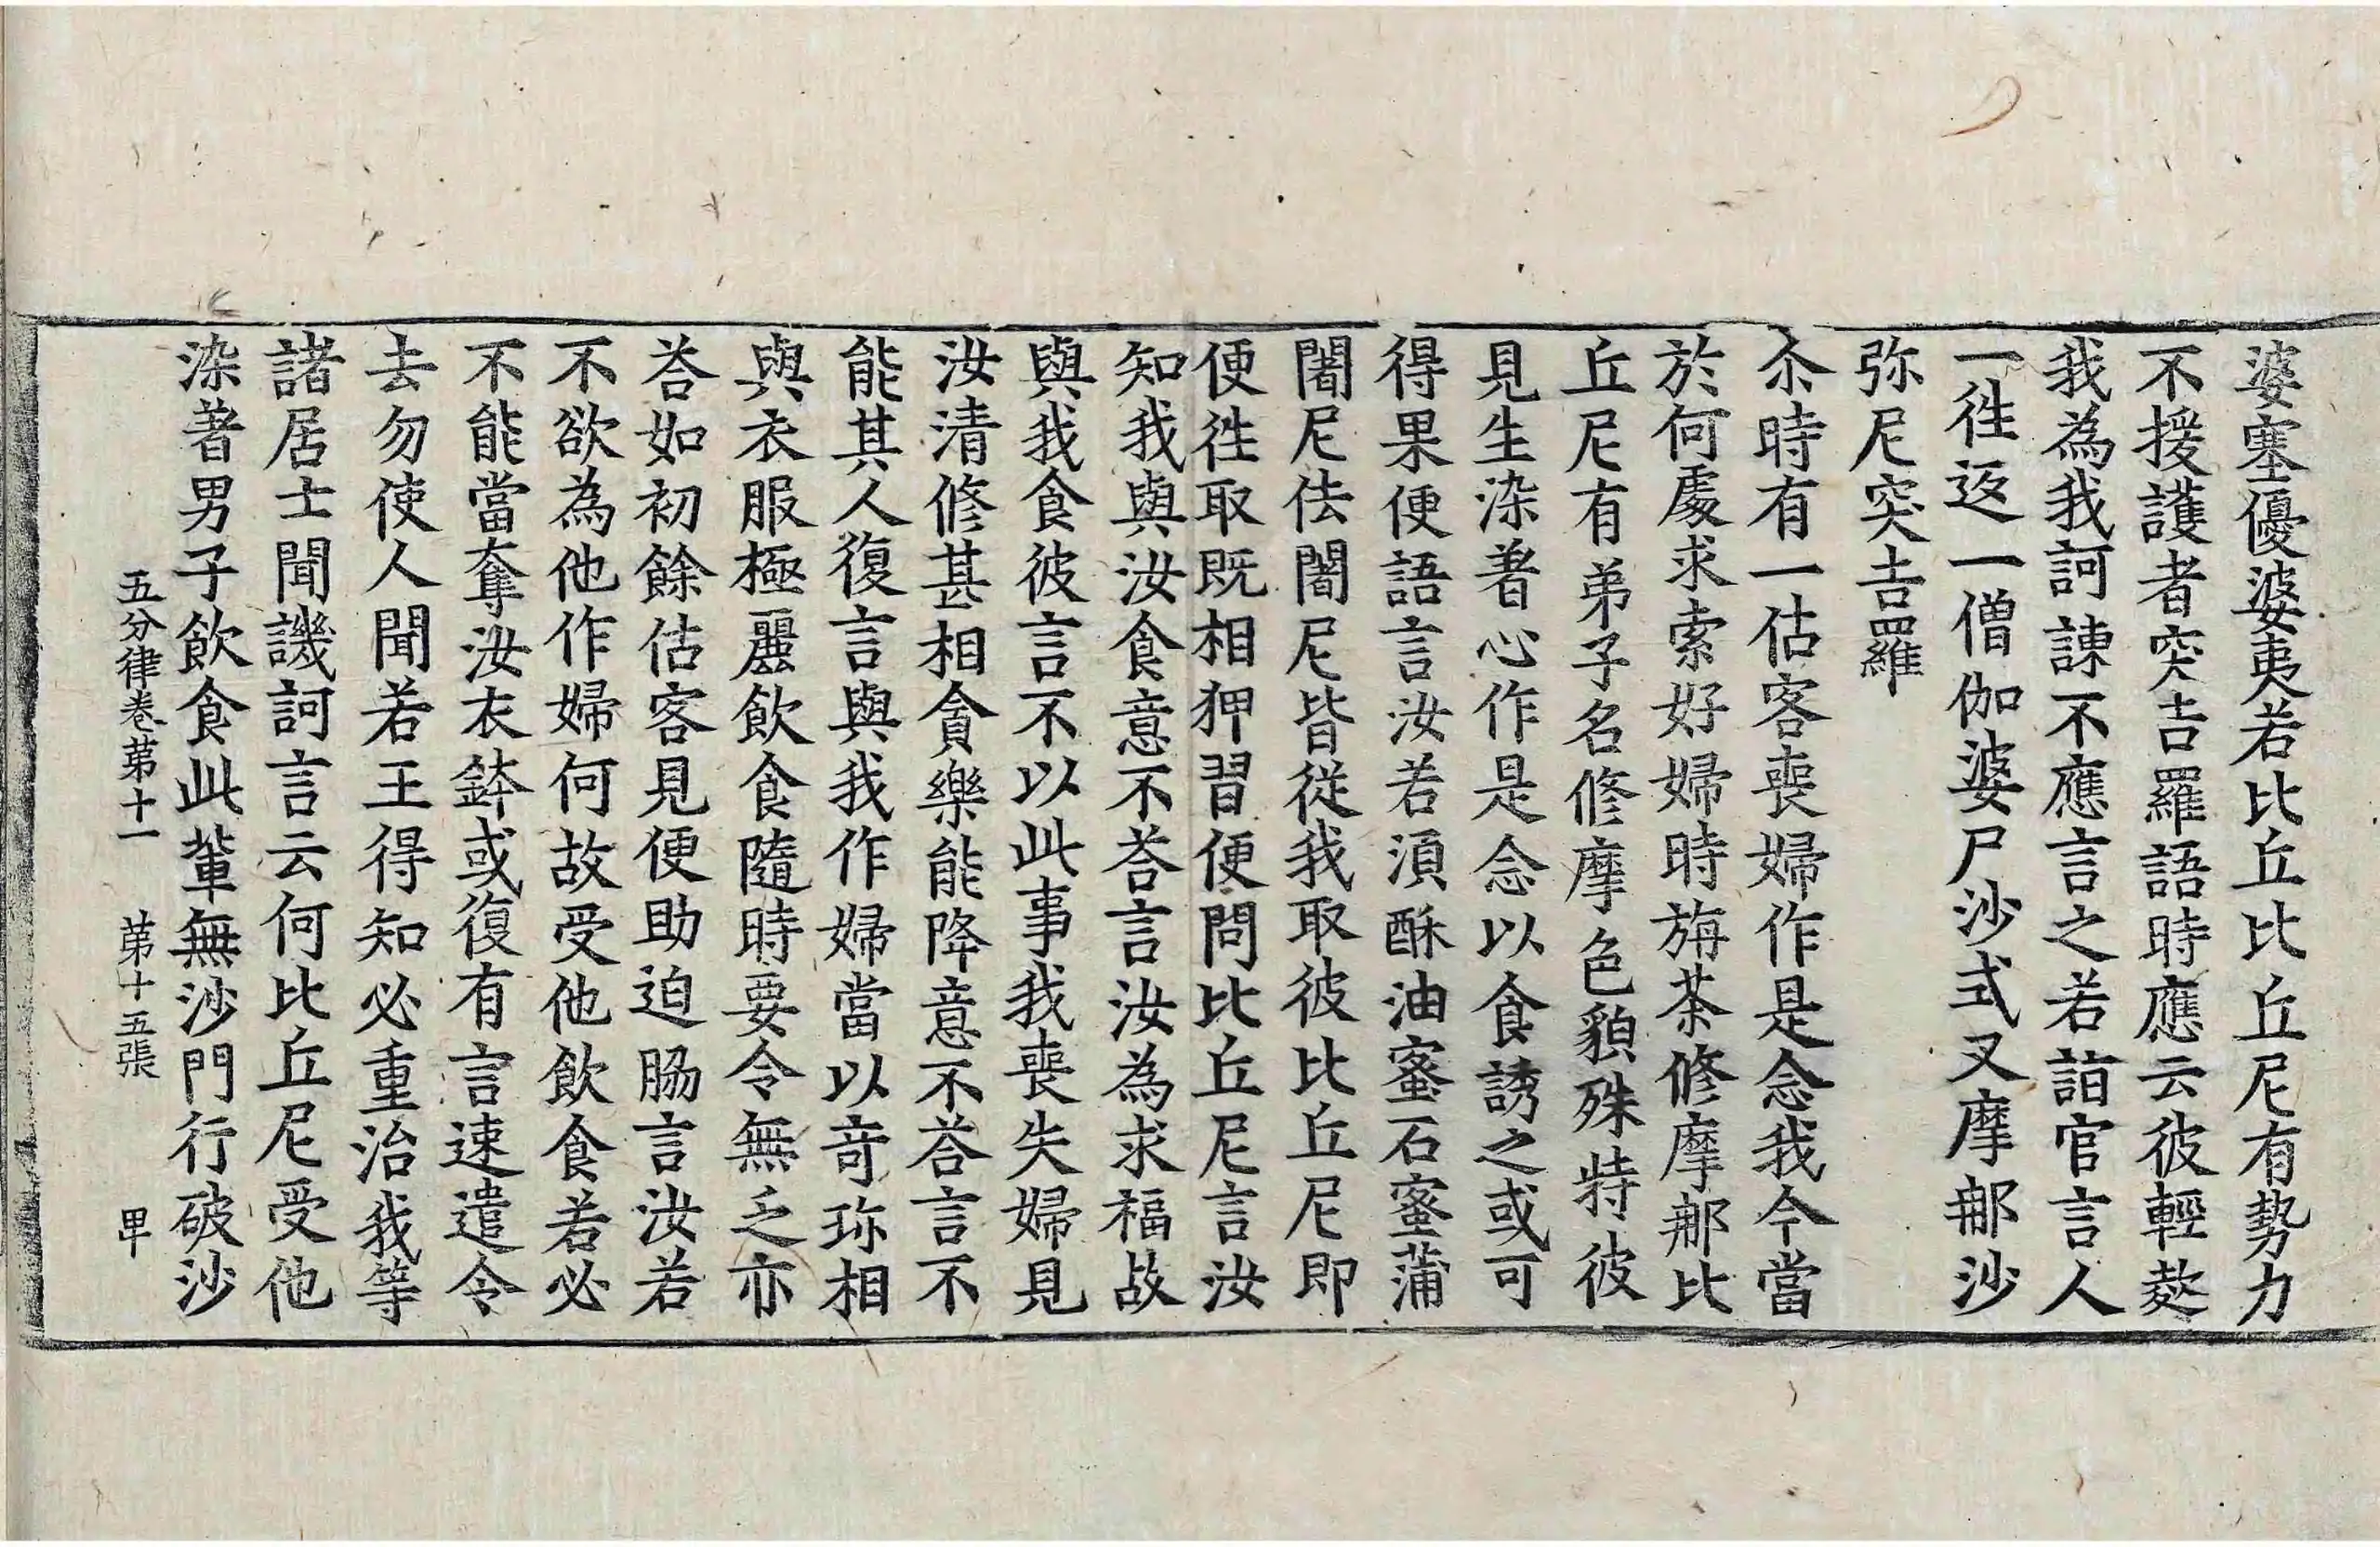 婆塞優婆夷若比丘比丘尼有勢力
不援護者突吉羅語時應云彼輕
我為我訶諫不應言之若詣官言人
一徃返一僧伽婆尸沙式叉摩那沙
弥尼突吉羅
尒時有一估客喪婦作是念我今當
於何處求索好婦時旃荼修摩那比
丘尼有弟子名修摩色貌殊特彼
見生染著心作是念以食誘之或可
得果便語言汝若湏酥油蜜石蜜蒲
闍尼佉闍尼皆從我取彼比丘尼即
便徃取既相狎習便問比丘尼言汝
知我與汝食意不荅言汝為求福故
與我食彼言不以此事我喪失婦見
汝清修甚相貪樂能降意不荅言不
能其人復言與我作婦當以竒珎相
與衣服極麗飲食隨時要令無乏亦
荅如初餘估客見便助迫脇言汝若
不欲為他作婦何故受他飲食若必
不能當奪汝衣鉢或復有言速遣令
去勿使人聞若王得知必重治我等
諸居士聞譏訶言云何比丘尼受他
染著男子飲食此輩無沙門行破沙
五分律卷第十一　第十五張